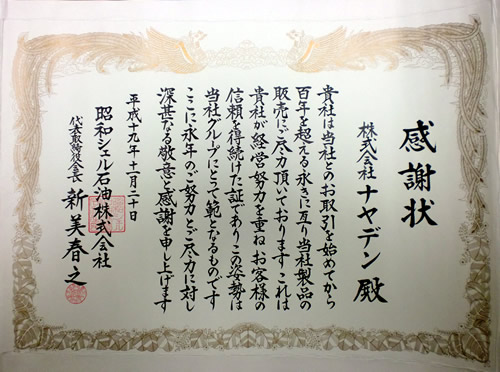 感謝状
株式会社ナヤデン殿
貴社は当社とのお取引を始めてから
百年を超える永きに亙り当社製品の
販売にご尽力頂いております これは
貴社が経営努力を重ねお客様の
信頼を得続けた証であり この姿勢は
当社グループにとって範となるものです
ここに永年のご努力とご尽力に対し
深甚なる敬意と感謝を申し上げます
平成十九年十一月二十日
昭和シェル石油株式会社
代表取締役会長 新美春之